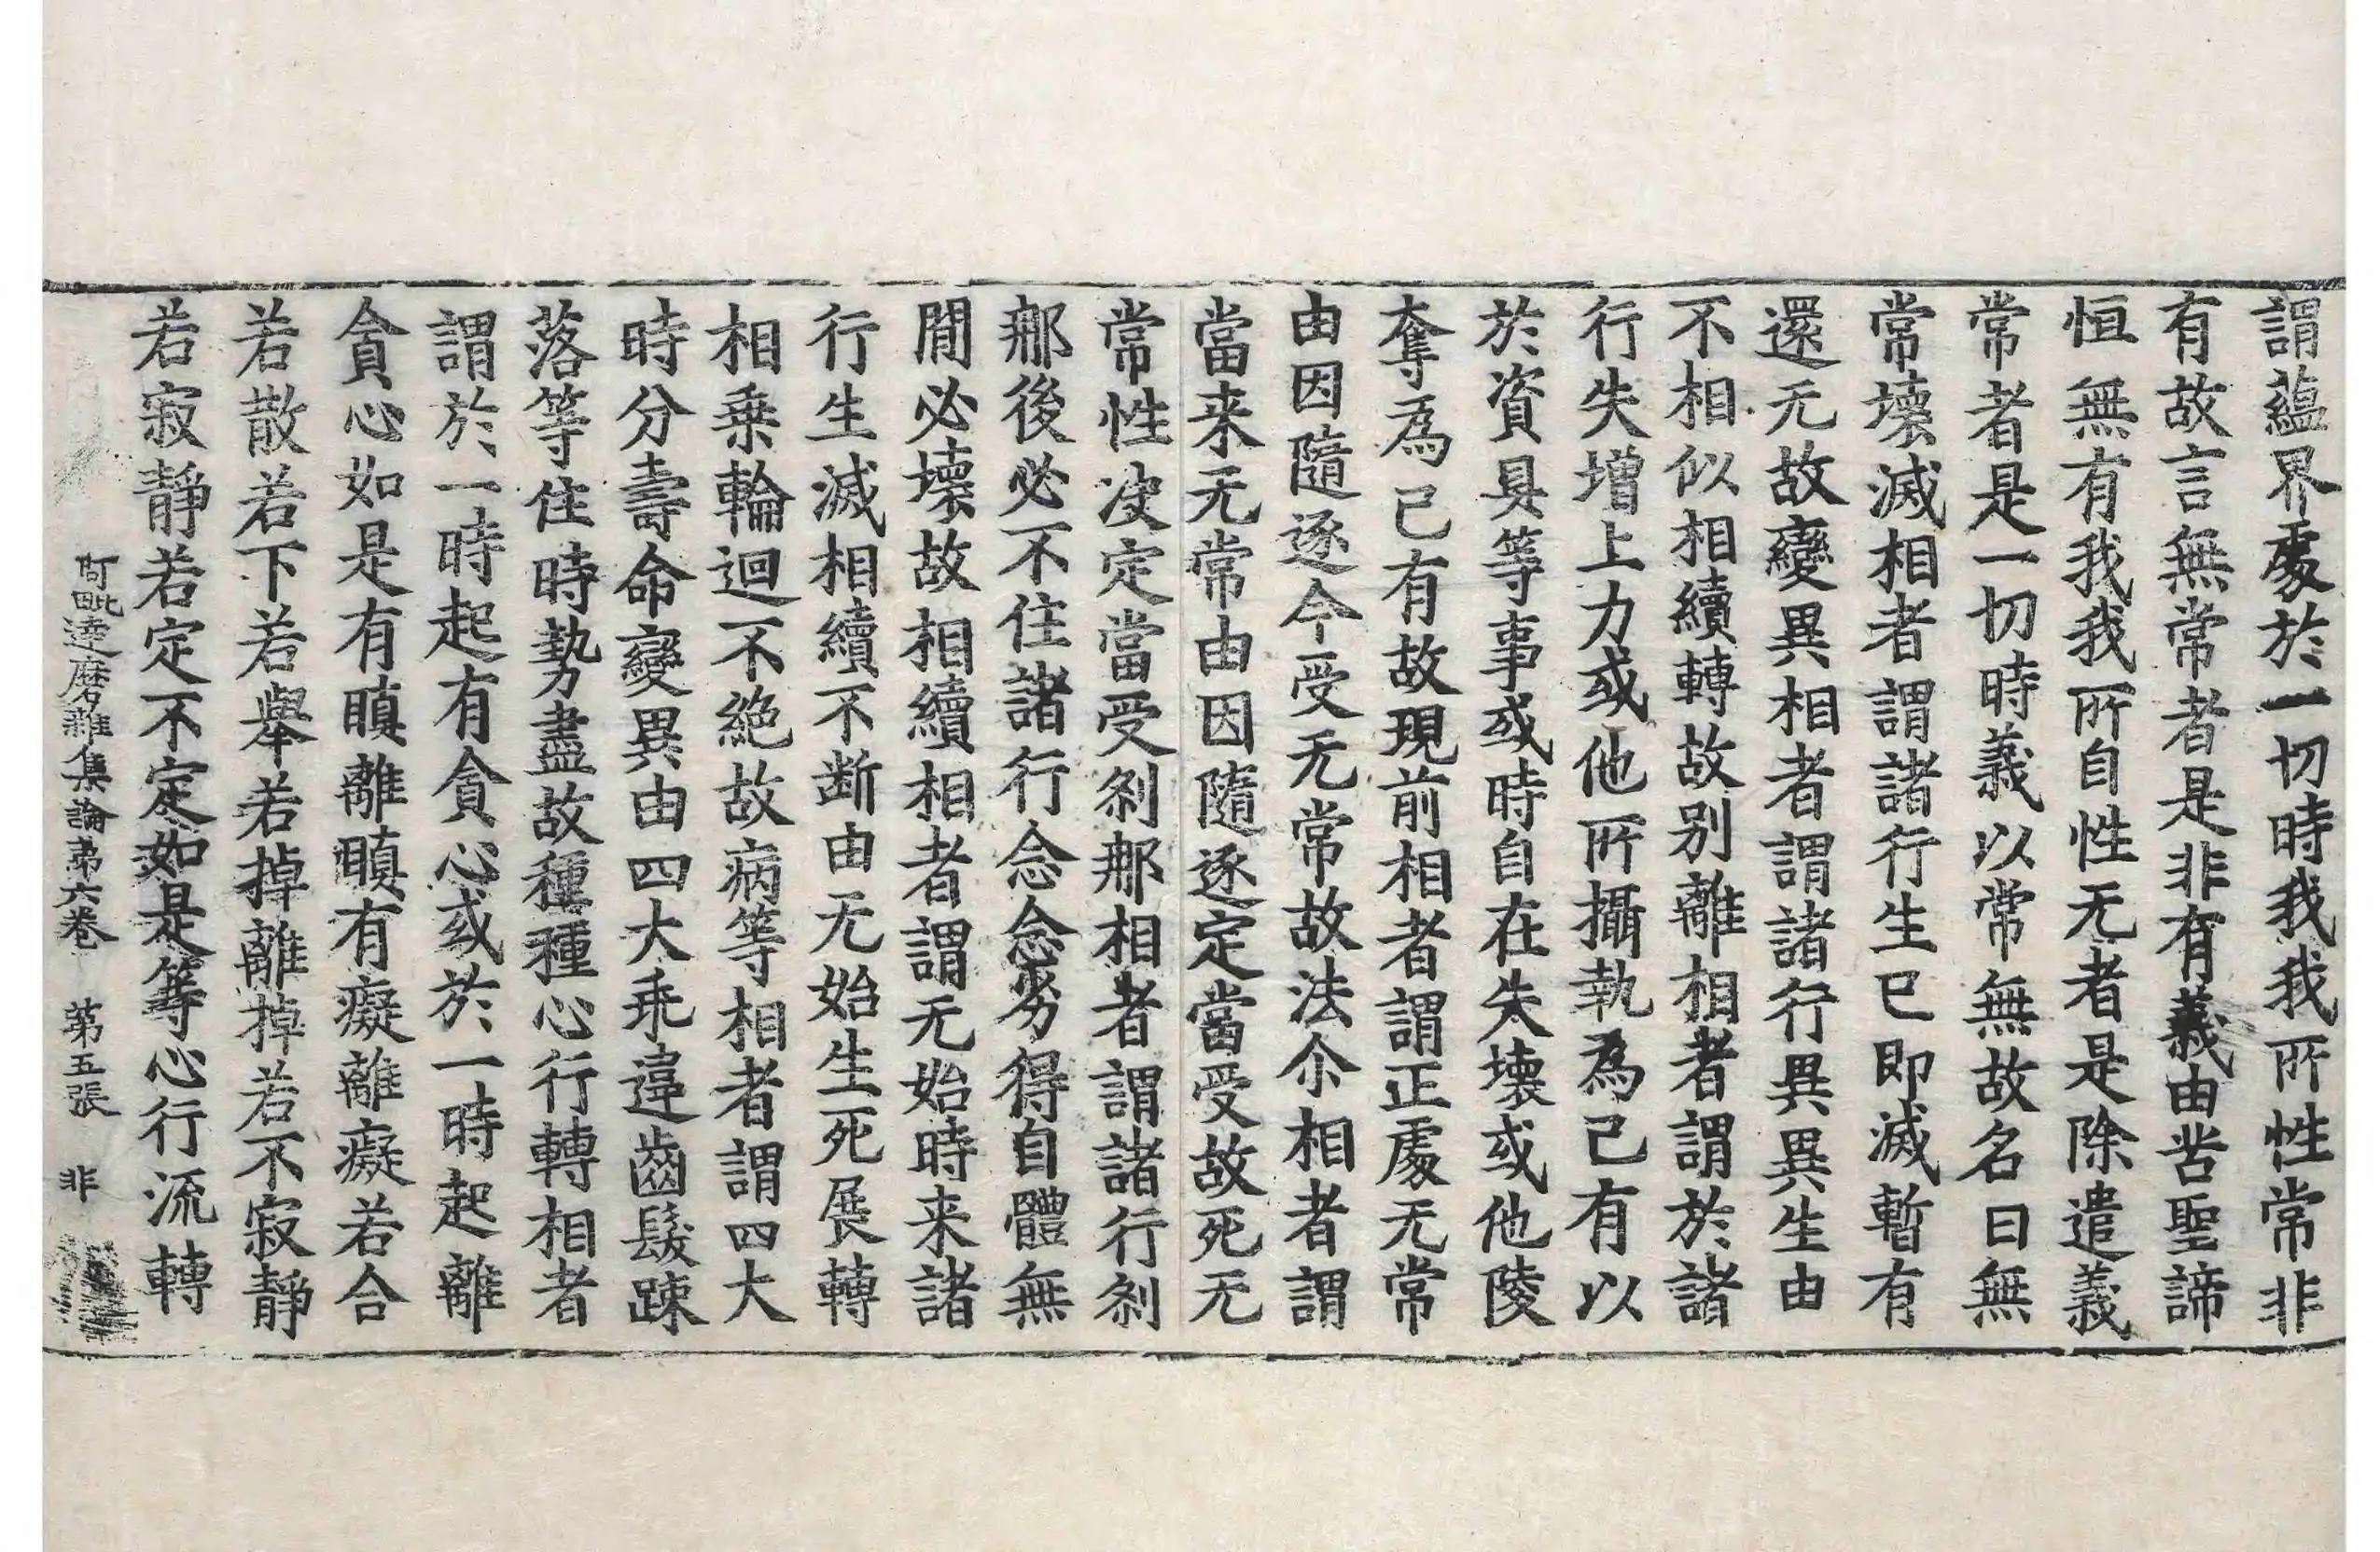 謂蘊界處於一切時我我所性常非
有故言無常者是非有義由苦聖諦
恒無有我我所自性无者是除遣義
常者是一切時義以常無故名曰無
常壞滅相者謂諸行生已即滅暫有
還无故變異相者謂諸行異異生由
不相似相續轉故別離相者謂於諸
行失增上力或他所攝執為己有以
於資具等事或時自在失壞或他陵
奪為己有故現前相者謂正處无常
由因隨逐今受无常故法尒相者謂
當来无常由因隨逐定當受故死无
常性决定當受剎那相者謂諸行剎
那後必不住諸行念念劣得自體無
間必壞故相續相者謂无始時来諸
行生滅相續不断由无始生死展轉
相乗輪迴不絶故病等相者謂四大
時分壽命變異由四大乖違齒髮踈
落等住時勢盡故種種心行轉相者
謂於一時起有貪心或於一時起離
貪心如是有瞋離瞋有癡離癡若合
若散若下若舉若掉離掉若不寂靜
若寂靜若定不定如是等心行流轉
阿毗達磨雜集論苐六卷　第五張　非